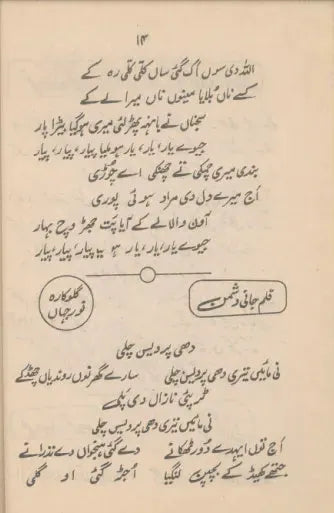 ۱۴
اللہ دی سوں اُک گئی ساں کلی کلی رہ کے
کسے ناں بُلایا مینوں ناں میرا لے کے
سجناں نے بانہہ پھڑ لئی میری ہو گیا بیڑا پار
جیوے یار، یار، یار ہو ملیا پیار، پیار، پیار
بندی میری چمکی تے چھنکی اے چوڑی
اَج میرے دل دی مراد ہوئی پوری
آون والا لے کے آیا پت جھڑ وِچ بہار
جیوے یار، یار، یار ہو پیار، پیار، پیار
فلم جانی دشمن
گلوکارہ نورجہاں
دھی پردیس چلی
نی مائیں تیری دھی پردیس چلی سارے گھر نوں روندیاں چھڈ کے
ٹر پئی نازاں دی پلی
نی مائیں تیری دھی پردیس چلی
اَج توں ایہدے دُور ٹھکانے دے گئی ہنجواں دے نذرانے
جتھے کھیڈ کے بچپن لنگیا اُجڑ گئی او گلی